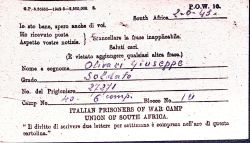 P.O.W. 10.
South Africa. 2-6-43.
Io sto bene, spero anche di voi.
Ho ricevuto posta
Aspetto vostre notizie.
Scancellare la frase inapplicabile.
Saluti cari.
(È vietato aggiungere qualsiasi altra frase.)
Nome e cognome Olivari Giuseppe
Grado Soldato
No. del Prigioniere
Camp No. Blocco No.
ITALIAN PRISONERS OF WAR CAMP
UNION OF SOUTH AFRICA.
"Il diritto di scrivere due lettere per settimana è compreso nell'aro di questa
cartolina."